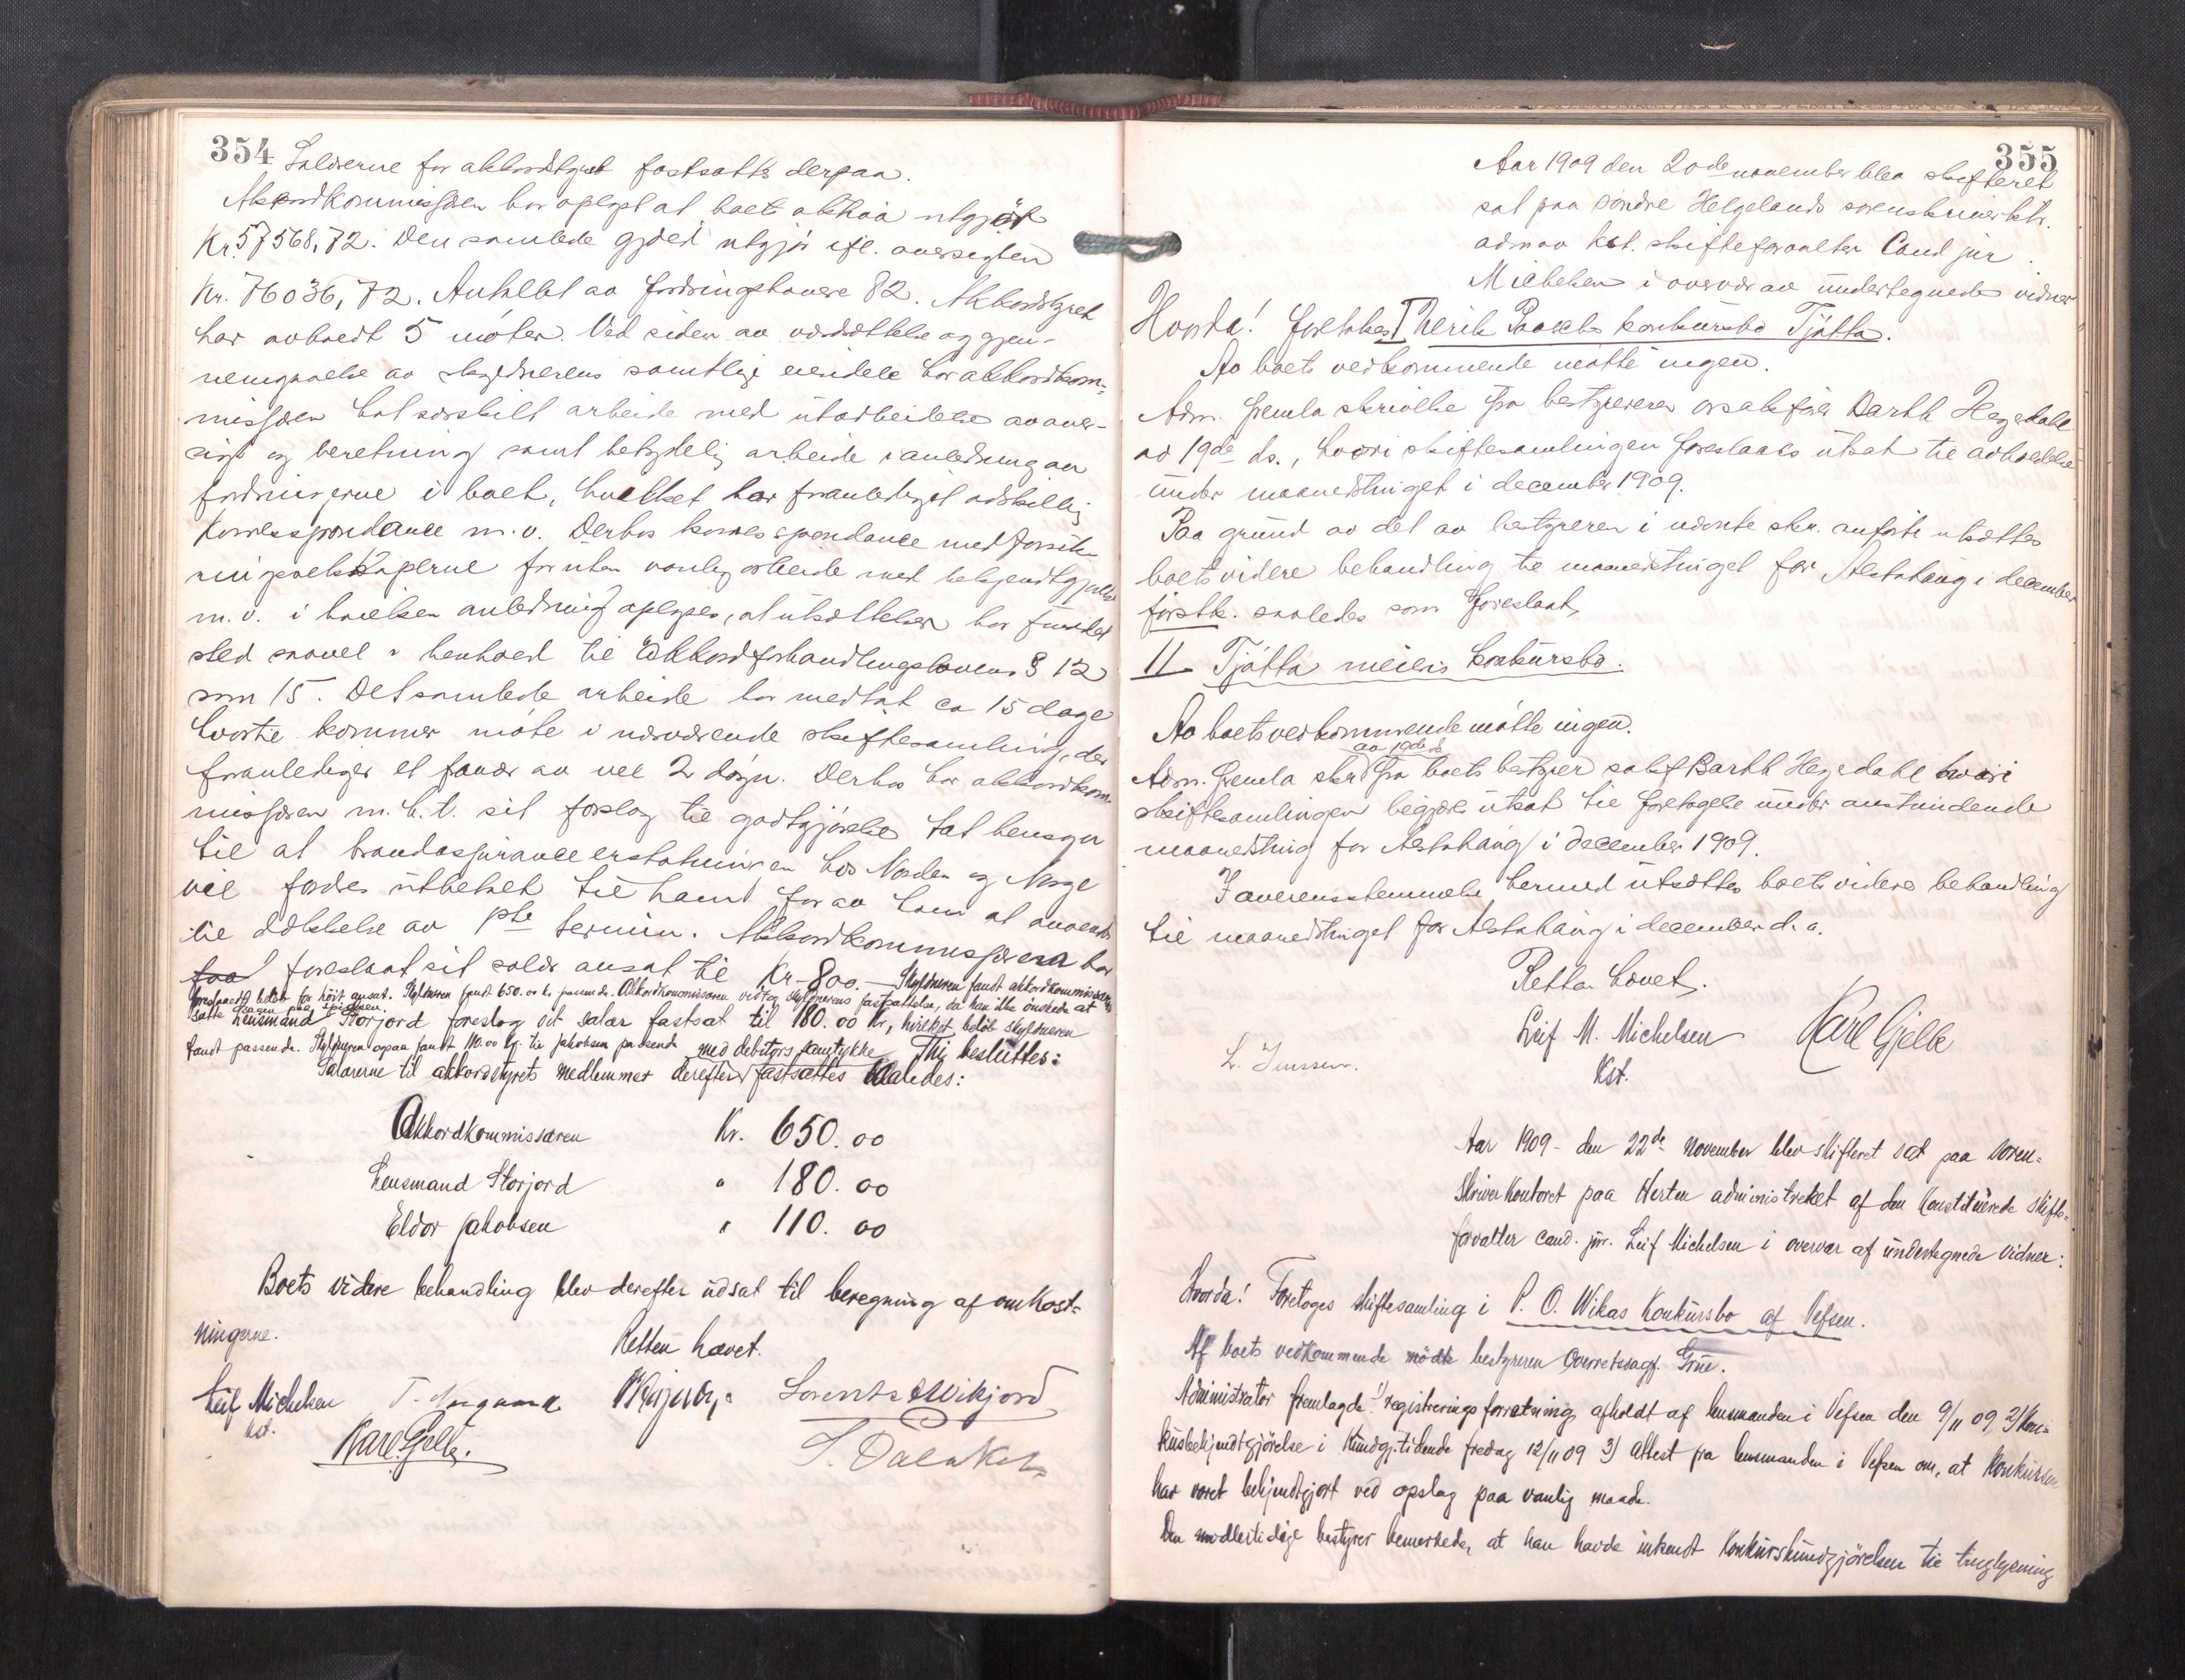 354
Salærerne for akkordstyret fastsattes derpaa.
Akkordkommissæren har oplyst at boets aktiva utgjør
Kr. 57568,72. Den samlede gjæld utgjør ifl. oversigten
Kr. 76036,72. Antallet av fordringshavere 82. Akkordstyret
har avholdt 5 møter. Ved siden av værdsættelse og gjen-
nemgaaelse av skyldnerens samtlige eiendele har akkordkom-
missæren hat særskilt arbeide med utarbeidelse av over-
sigt og beretning samt betydelig arbeide i anledning av
fordringerne i boet, hvilket har foranlediget adskillig
Korrespondance m.v. Derhos korrespondance med forsik-
ringsselskaperne foruten vanlig arbeide med bekjendtgjørelse
m.v. i hvilken anledning oplyses, at utsættelser har fundet
sted saavel i henhold til Akkordforhandlingslovens § 12
som 15. Det samlede arbeide har medtat ca 15 dage
hvortil kommer møte i nærværende skiftesamling, der
foranlediger et fravær av vel 2 døgn. Derhos har akkordkom-
missæren m.h.t. sit forslag til godtgjørelse tat hensyn
til at brandassuranceerstatningen hos Norden og Norge
vil fordres utbetalt til ham for av ham at anvendes
til dækkelse av 1ste termin. Akkordkommissæren har
faa foreslaat sit salær ansat til Kr. 800.— Skyldneren fandt akkordkommissærens
foreslaaede beløb for høit ansat. Skyldneren fandt 650.00 kr. passende. Akkordkommissæren vedtog skyldnerens fastsættelse, da han ikke ønskede at
sætte sagen paa spidsen.
Lensmand Storjord foreslog sit salær fastsat til 180.00 Kr, hvilket beløb skyldneren
fandt passende. Skyldneren ogsaa fandt 110.00 kr. til Jakobsen passende med debitors samtykke Thi besluttes:
Salærerne til akkordstyrets medlemmer derefter fastsættes saaledes:
Akkordkommissæren Kr. 650.00
Lensmand Storjord " 180.00
Eldor Jakobsen " 110.00
Boets videre behandling blev derefter udsat til beregning af omkost-
ningerne.
Retten hævet.
Leif Michelsen
Kst.
Karl Gjelle.
355
Aar 1909 den 20de november blev skifteret
sat paa søndre Helgelands sorenskriverktr.
adm av kst. skifteforvalter Cand jur
Michelsen i overvær av undertegnede vidner
Hvorda! foretokes I Paasche konkursbo Tjøtta.
Av boets vedkommende møtte ingen.
Adm. fremla skrivelse fra bestyreren orsakfører Barth Hegdahl
av 19de ds., hvori skiftesamlingen foreslaaes utsat til avholdelse
under maanedstinget i december 1909.
Paa grund av det av bestyreren i nævnte skr. anførte utsættes
boets videre behandling til maanedstinget for Alstahaug i december
førstk. saaledes som foreslaat,
II Tjøtta meieris konkursbo.
Av boets vedkommende møtte ingen.
av 19de ds
Adm. fremla skr fra boets bestyrer sakf Barth Hegdahl hvori
skiftesamlingen begjæres utsat til foretagelse under anstundende
maanedsting for Alstahaug i december 1909.
I overensstemmelse hermed utsættes boets videre behandling
til maanedstinget for Alstahaug i december d.a.
Retten hævet.
Leif M. Michelsen Karl Gjelle
Kst.
L. Jenssen.
Aar 1909 – den 22de November blev skifteret sat paa soren-
skriverkontoret paa Herten administreret af den Konstituerede skifte-
forvalter cand. jur. Leif Michelsen i overvær af undertegnede vidner:
Hvorda! Foretoges skiftesamling i P. O. Wikas Konkursbo af Vefsen.
Af boets vedkommende mødte bestyreren Overretssagf. Grue.
Administrator fremlagde 1) registreringsforretning afholdt af lensmanden i Vefsen den 9/11 09, 2) Kon-
kursbekjendtgjørelse i Kundgj.tidende fredag 12/11 09 3) Attest fra lensmanden i Vefsen om, at Konkursen
har været bekjendtgjort ved opslag paa vanlig maade.
Den midlertidige bestyrer bemerkede, at han havde indsendt Konkurskundgjørelsen til tinglysning